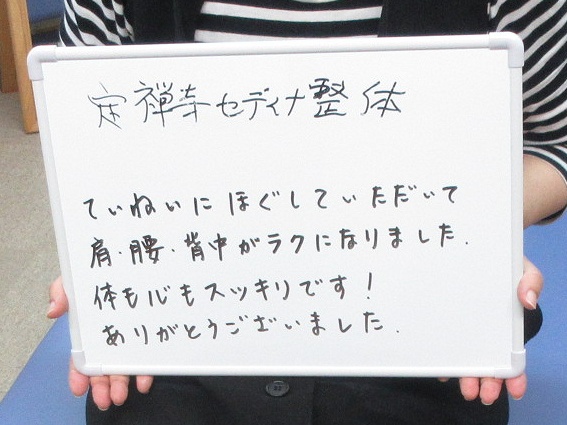 定禅寺セディナ整体
ていねいにほぐしていただいて
肩・腰・背中がラクになりました.
体も心もスッキリです!
ありがとうございました.